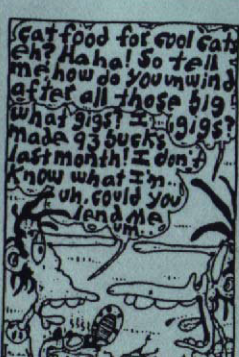 Cat food for cool cats
eh? Haha! So tell
me, how do you unwind
after all those big
gigs?
what gigs? I
made 93 bucks
last month! I don't
know what I'm...
uh, could you
lend me
um